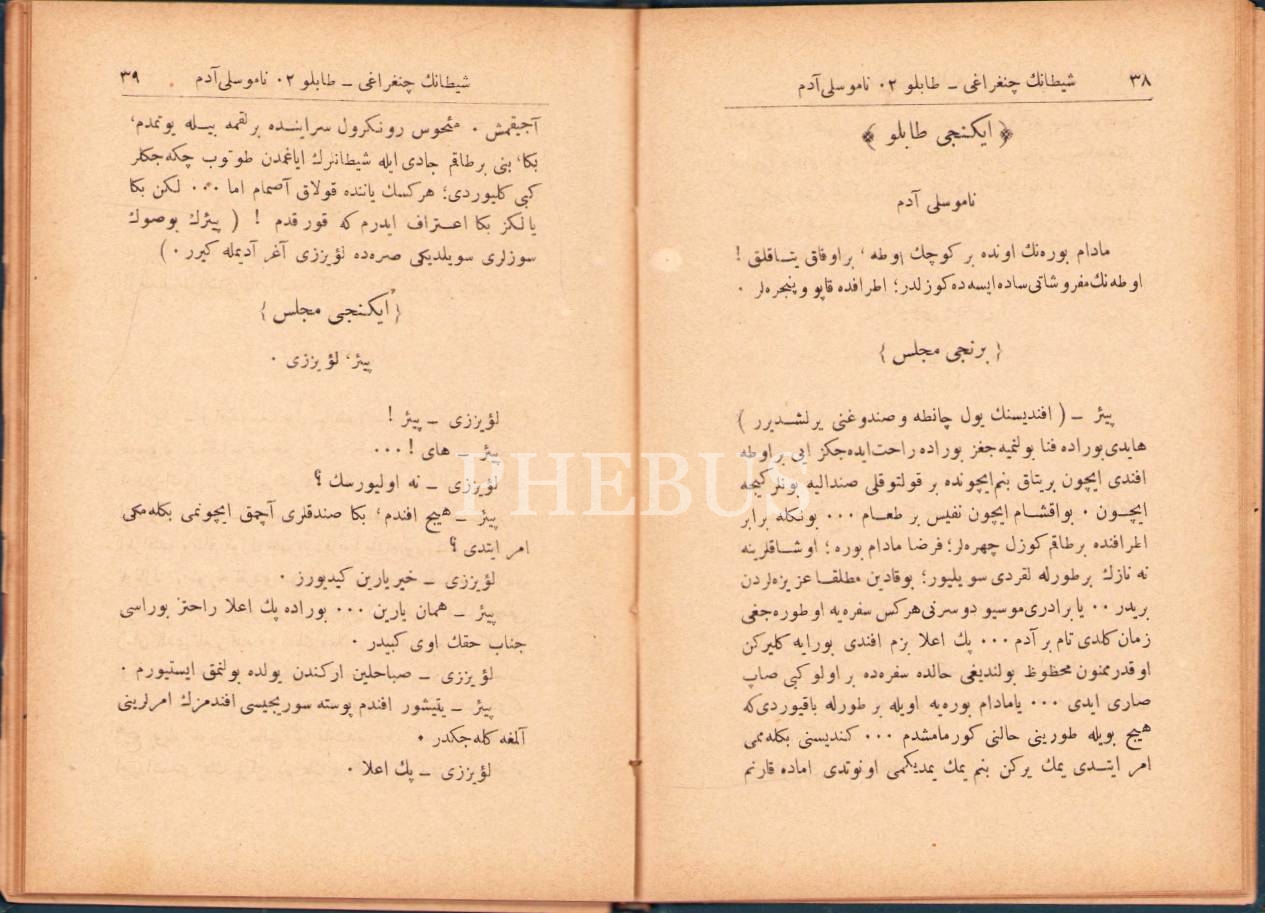 ٣٨ شیطانك چنغراغی ــ طابلو ٠٢ ناموسلی آدم
﴿ ایكنجی طابلو ﴾
ناموسلی آدم
مادام بوره‌نك اونده بر كوچك اوطه ، براوفاق یتـاقلق !
اوطه‌نك مفروشاتی ساده ایسه‌ده كوزلدر؛ اطرافده قاپو و پنجره‌لر ٠
﴿ برنجی مجلس ﴾
پیئر ــ ( افندیسنك یول چانطه و صندوغنی یرلشـدیرر )
هایدی بوراده فنا بولنمیه‌جغز بوراده راحت ایده‌جكز ایی براوطه
افندی ایچون بریتاق بنم ایچونده بر قولتوقلی صندالیه بونلر كیجه
ایچـون ٠ بواقشـام ایچون نفیس بر طعـام ٠٠٠ بونكله برابر
اطرافنده برطاقم كوزل چهره‌لر؛ فرضا مادام بوره ؛ اوشـاقلرینه
نه نازك برطورله لقردی سویلیور؛ بوقادین مطلقـا عزیزه‌لردن
بریدر ٠٠ یا برادری موسیو دوسرنی هركس سفره‌یه اوطوره‌جغی
زمان كلدی تام بر آدم ٠٠٠ پك اعلا بزم افندی بورایه كلیركن
اوقدر ممنون محظوظ بولندیغی حالده سفره‌ده بر اولو كبی صاپ
صاری ایدی ٠٠٠ یامادام بوره‌یه اویله بر طورله باقیوردی كه
هیچ بویله طورینی حالنی كورمامشدم ٠٠٠ كندیسنی بكله‌می
امر ایتـدی یمك یركن بنم یمك یمدیكمی اونوتدی اماده قارنم
شیطانك چنغراغی ــ طابلو ٠٢ ناموسلی آدم ٣٩
آجیقمش ٠ منحوس رونكرول سراینـده برلقمه بیـله یوتمدم،
بكا، بنی برطاقم جادی ایله شیطانلرك ایاغمدن طوتوب چكه‌جكلر
كبی كلیوردی؛ هركسك یاننده قولاق آصمام اما ٠٠٠ لكن بكا
یالكز بكا اعـتراف ایدرم كه قورقدم ! ( پیئرك بوصوك
سوزلری سویلدیكی صره‌ده لؤیززی آغر آدیمله كیرر ٠ )
﴿ ایكنجی مجلس ﴾
پیئر، لؤیززی ٠
لؤیززی ــ پیئر !
پیئر ــ های ! ٠٠٠
لؤیززی ــ نه اولیورسك ؟
پیئر ــ هیچ افندم، بكا صندقلری آچمق ایچونمی بكله‌مكی
امر ایتدی ؟
لؤیززی ــ خیر یارین كیدیورز ٠
پیئر ــ همان یارین ٠٠٠ بوراده پك اعلا راحتز بوراسی
جناب حقك اوی كبیدر ٠
لؤیززی ــ صباحلین اركندن یولده بولنمق ایستیورم ٠
پیئر ــ یتیشور افندم پوسته سوریجیسی افندمزك امرلرینی
آلمغه كله‌جكدر ٠
لؤیززی ــ پك اعلا ٠
PHEBUS